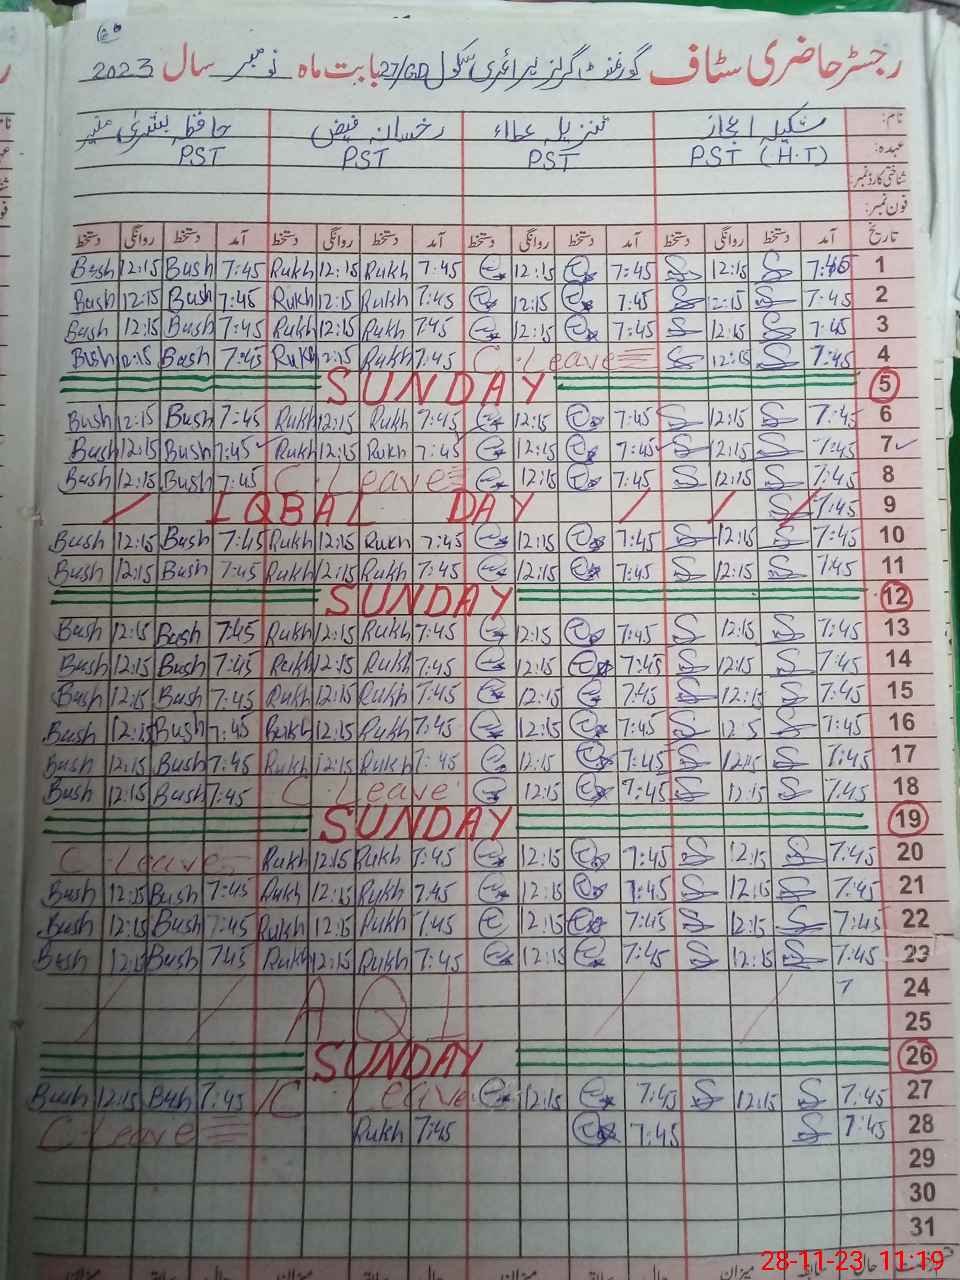 رجسٹر حاضری سٹاف گورنمنٹ گرلز پرائمری سکول 27/GD بابت ماہ نومبر سال 2023
نام: شکیلہ اعجاز تنزیلہ عطاء رخسانہ فیض حافظہ بشریٰ منیر
عہدہ: PST (H.T) PST PST PST
شناختی کارڈ نمبر:
فون نمبر:
تاریخ آمد دستخط روانگی دستخط آمد دستخط روانگی دستخط آمد دستخط روانگی دستخط آمد دستخط روانگی دستخط
Bush 12:15 Bush 7:45 Rukh 12:15 Rukh 7:45 12:15 7:45 S 12:15 S 7:45 1
Bush 12:15 Bush 7:45 Rukh 12:15 Rukh 7:45 12:15 7:45 S 12:15 S 7:45 2
Bush 12:15 Bush 7:45 Rukh 12:15 Rukh 7:45 12:15 7:45 S 12:15 S 7:45 3
Bush 12:15 Bush 7:45 Rukh 12:15 Rukh 7:45 C-Leave S 12:15 S 7:45 4
SUNDAY 5
Bush 12:15 Bush 7:45 Rukh 12:15 Rukh 7:45 12:15 7:45 S 12:15 S 7:45 6
Bush 12:15 Bush 7:45 Rukh 12:15 Rukh 7:45 12:15 7:45 S 12:15 S 7:45 7
Bush 12:15 Bush 7:45 C-Leave 12:15 7:45 S 12:15 S 7:45 8
/ IQBAL DAY / / S 7:45 9
Bush 12:15 Bush 7:45 Rukh 12:15 Rukh 7:45 12:15 7:45 S 12:15 S 7:45 10
Bush 12:15 Bush 7:45 Rukh 12:15 Rukh 7:45 12:15 7:45 S 12:15 S 7:45 11
SUNDAY 12
Bush 12:15 Bush 7:45 Rukh 12:15 Rukh 7:45 12:15 7:45 S 12:15 S 7:45 13
Bush 12:15 Bush 7:45 Rukh 12:15 Rukh 7:45 12:15 7:45 S 12:15 S 7:45 14
Bush 12:15 Bush 7:45 Rukh 12:15 Rukh 7:45 12:15 7:45 S 12:15 S 7:45 15
Bush 12:15 Bush 7:45 Rukh 12:15 Rukh 7:45 12:15 7:45 S 12:5 S 7:45 16
Bush 12:15 Bush 7:45 Rukh 12:15 Rukh 7:45 12:15 7:45 S 12:15 S 7:45 17
Bush 12:15 Bush 7:45 C-Leave 12:15 7:45 S 12:15 S 7:45 18
SUNDAY 19
C-Leave Rukh 12:15 Rukh 7:45 12:15 7:45 S 12:15 S 7:45 20
Bush 12:15 Bush 7:45 Rukh 12:15 Rukh 7:45 12:15 7:45 S 12:15 S 7:45 21
Bush 12:15 Bush 7:45 Rukh 12:15 Rukh 7:45 12:15 7:45 S 12:15 S 7:45 22
Bush 12:15 Bush 7:45 Rukh 12:15 Rukh 7:45 12:15 7:45 S 12:15 S 7:45 23
7 24
/ / A Q I / / 25
SUNDAY 26
Bush 12:15 Bush 7:45 C-Leave 12:15 7:45 S 12:15 S 7:45 27
C-Leave Rukh 7:45 7:45 S 7:45 28
29
30
31
28-11-23 11:19